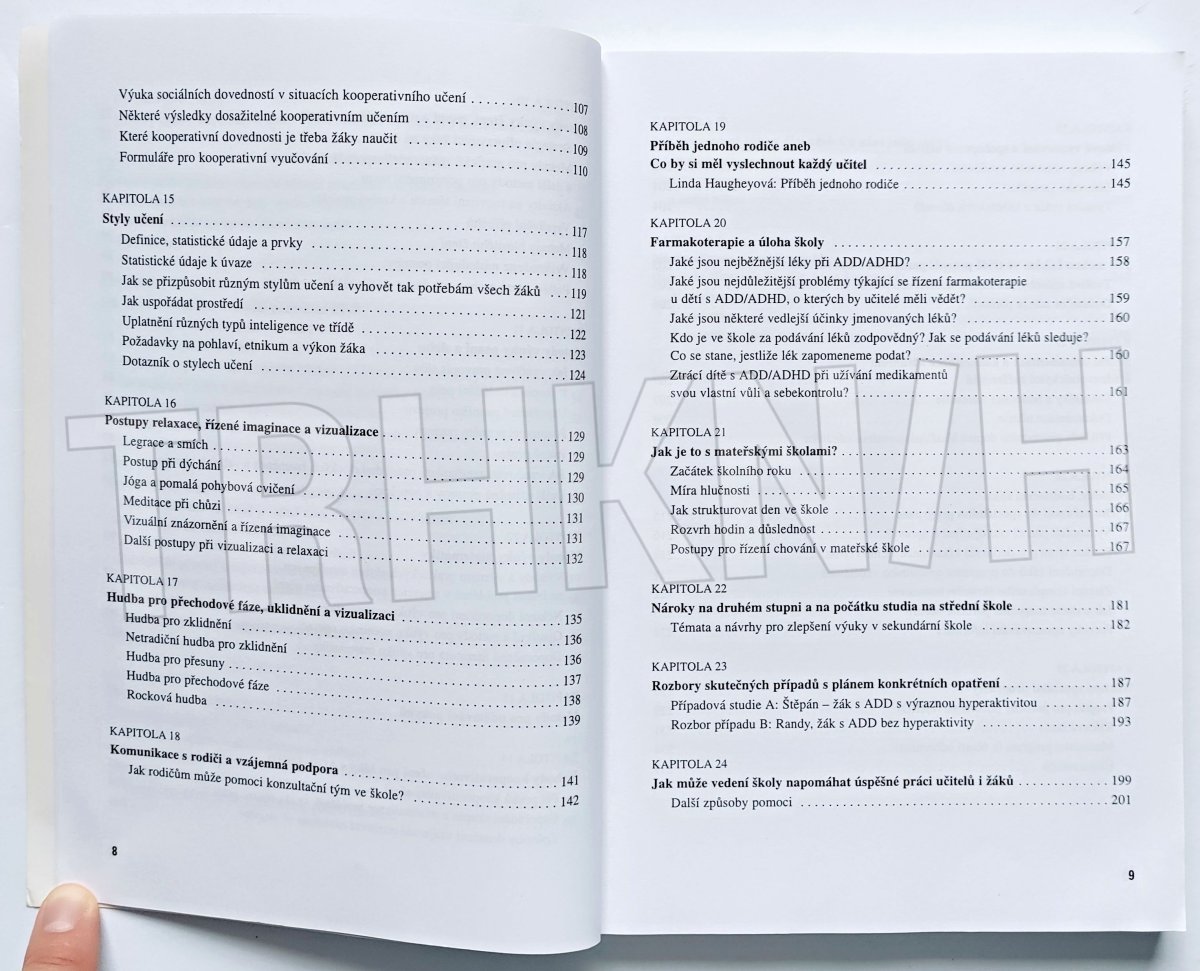 Výuka sociálních dovedností v situacích kooperativního učení 107
Některé výsledky dosažitelné kooperativním učením 108
Které kooperativní dovednosti je třeba žáky naučit 109
Formuláře pro kooperativní vyučování 110
KAPITOLA 15
Styly učení 117
Definice, statistické údaje a prvky 118
Statistické údaje k úvaze 118
Jak se přizpůsobit různým stylům učení a vyhovět tak potřebám všech žáků 119
Jak uspořádat prostředí 121
Uplatnění různých typů inteligence ve třídě 122
Požadavky na pohlaví, etnikum a výkon žáka 123
Dotazník o stylech učení 124
KAPITOLA 16
Postupy relaxace, řízené imaginace a vizualizace 129
Legrace a smích 129
Postup při dýchání 129
Jóga a pomalá pohybová cvičení 130
Meditace při chůzi 131
Vizuální znázornění a řízená imaginace 131
Další postupy při vizualizaci a relaxaci 132
KAPITOLA 17
Hudba pro přechodové fáze, uklidnění a vizualizaci 135
Hudba pro zklidnění 136
Netradiční hudba pro zklidnění 136
Hudba pro přesuny 137
Hudba pro přechodové fáze 138
Rocková hudba 139
KAPITOLA 18
Komunikace s rodiči a vzájemná podpora 141
Jak rodičům může pomoci konzultační tým ve škole? 142
8
KAPITOLA 19
Příběh jednoho rodiče aneb
Co by si měl vyslechnout každý učitel 145
Linda Haugheyová: Příběh jednoho rodiče 145
KAPITOLA 20
Farmakoterapie a úloha školy 157
Jaké jsou nejběžnější léky při ADD/ADHD? 158
Jaké jsou nejdůležitější problémy týkající se řízení farmakoterapie
u dětí s ADD/ADHD, o kterých by učitelé měli vědět? 159
Jaké jsou některé vedlejší účinky jmenovaných léků? 160
Kdo je ve škole za podávání léků zodpovědný? Jak se podávání léků sleduje?
Co se stane, jestliže lék zapomeneme podat? 160
Ztrácí dítě s ADD/ADHD při užívání medikamentů
svou vlastní vůli a sebekontrolu? 161
KAPITOLA 21
Jak je to s mateřskými školami? 163
Začátek školního roku 164
Míra hlučnosti 165
Jak strukturovat den ve škole 166
Rozvrh hodin a důslednost 167
Postupy pro řízení chování v mateřské škole 167
KAPITOLA 22
Nároky na druhém stupni a na počátku studia na střední škole 181
Témata a návrhy pro zlepšení výuky v sekundární škole 182
KAPITOLA 23
Rozbory skutečných případů s plánem konkrétních opatření 187
Případová studie A: Štěpán – žák s ADD s výraznou hyperaktivitou 187
Rozbor případu B: Randy, žák s ADD bez hyperaktivity 193
KAPITOLA 24
Jak může vedení školy napomáhat úspěšné práci učitelů i žáků 199
Další způsoby pomoci 201
9
TRHKNIH